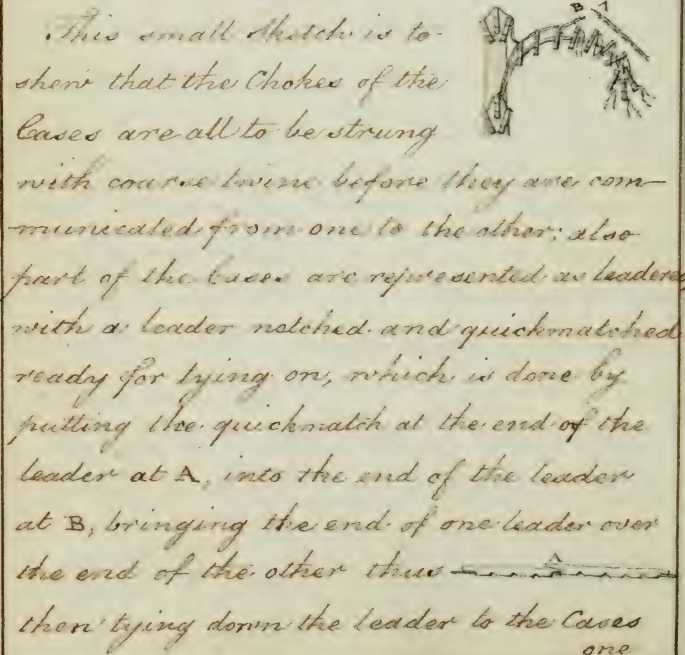 B A
This small Sketch is to
shew that the Chokes of the
Cases are all to be strung
with coarse twine before they are com-
municated from one to the other; also
part of the Cases are represented as leadered
with a leader notched and quickmatched
ready for tying on, which is done by
putting the quickmatch at the end of the
leader at A, into the end of the leader
at B, bringing the end of one leader over
the end of the other thus
A
then tying down the leader to the Cases
one